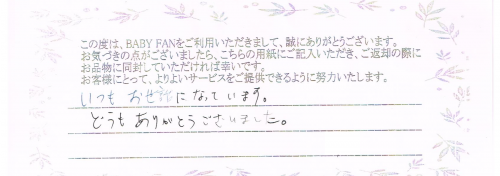 この度は、BABY FANをご利用いただきまして、誠にありがとうございます。
お気づきの点がございましたら、こちらの用紙にご記入いただき、ご返却の際に
お品物に同封していただければ幸いです。
お客様にとって、よりよいサービスをご提供できるように努力いたします。
いつも お世話になっています。
どうも ありがとうございました。